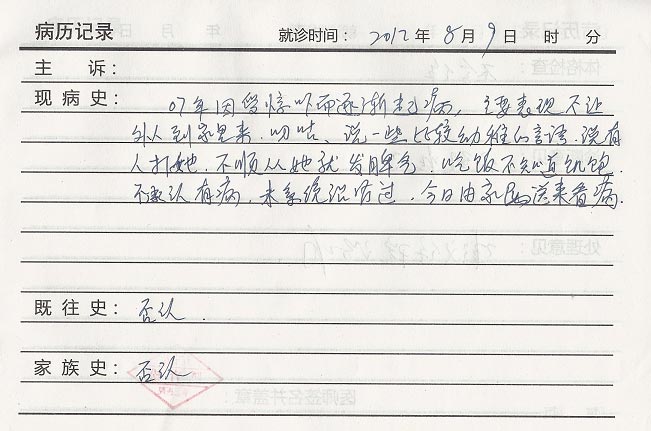 病历记录 就诊时间: 2012年 8月9日 时 分
主 诉:
现病史: 07年因受惊吓而逐渐起病, 主要表现不让
外人到家里来. 叨咕、说一些比较幼稚的言语. 说有
人打她. 不顺从她就发脾气. 吃饭不知道饥饱.
不承认有病. 未系统治疗过. 今日由家属送来看病.
既往史: 否认.
家族史: 否认